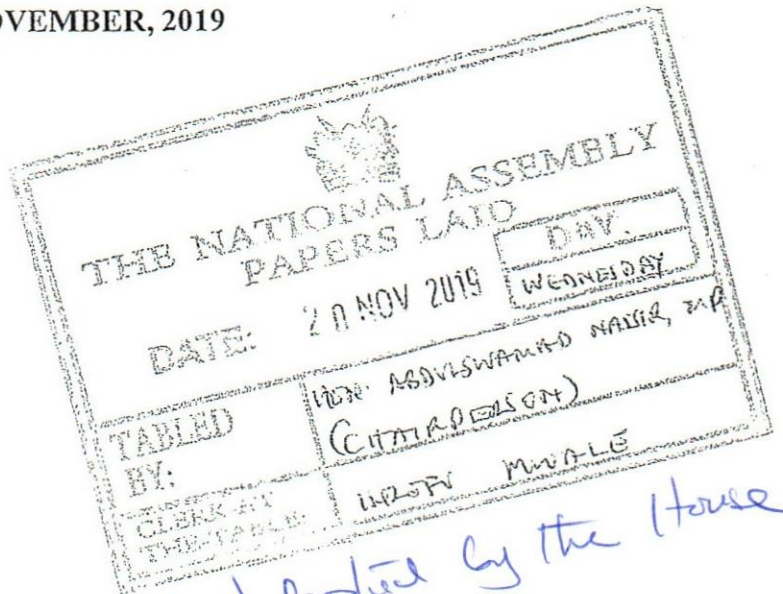 OVEMBER, 2019
THE NATIONAL ASSEMBLY
PAPERS LAID
DATE: 20 NOV 2019
DAY.
WEDNESDAY
TABLED BY:
HON. ABDULSWAMAD NASSIR, MP
(CHAIRPERSON)
CLERK AT THE-TABLE:
MWALE
by the House